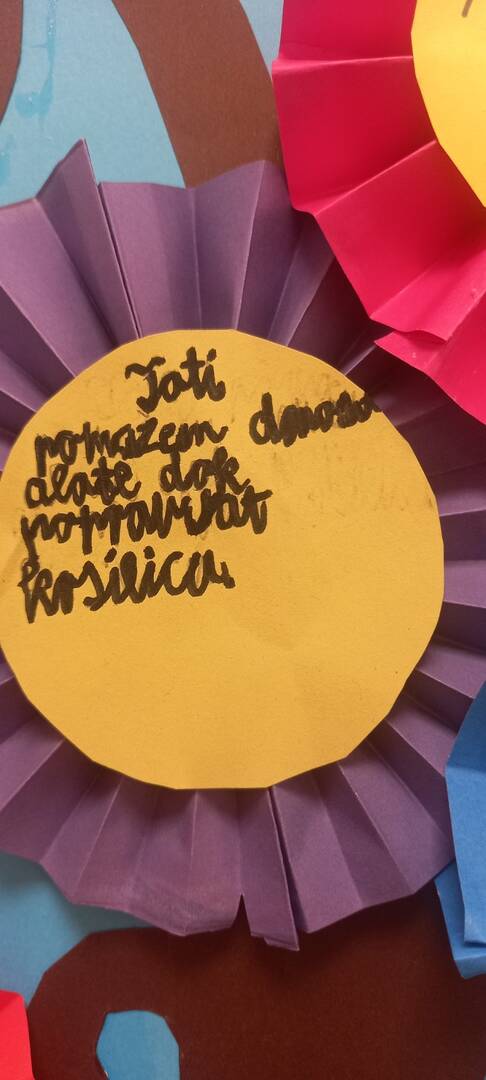 Tati
pomažem donosit
alate dok
popravlat
kosilica.